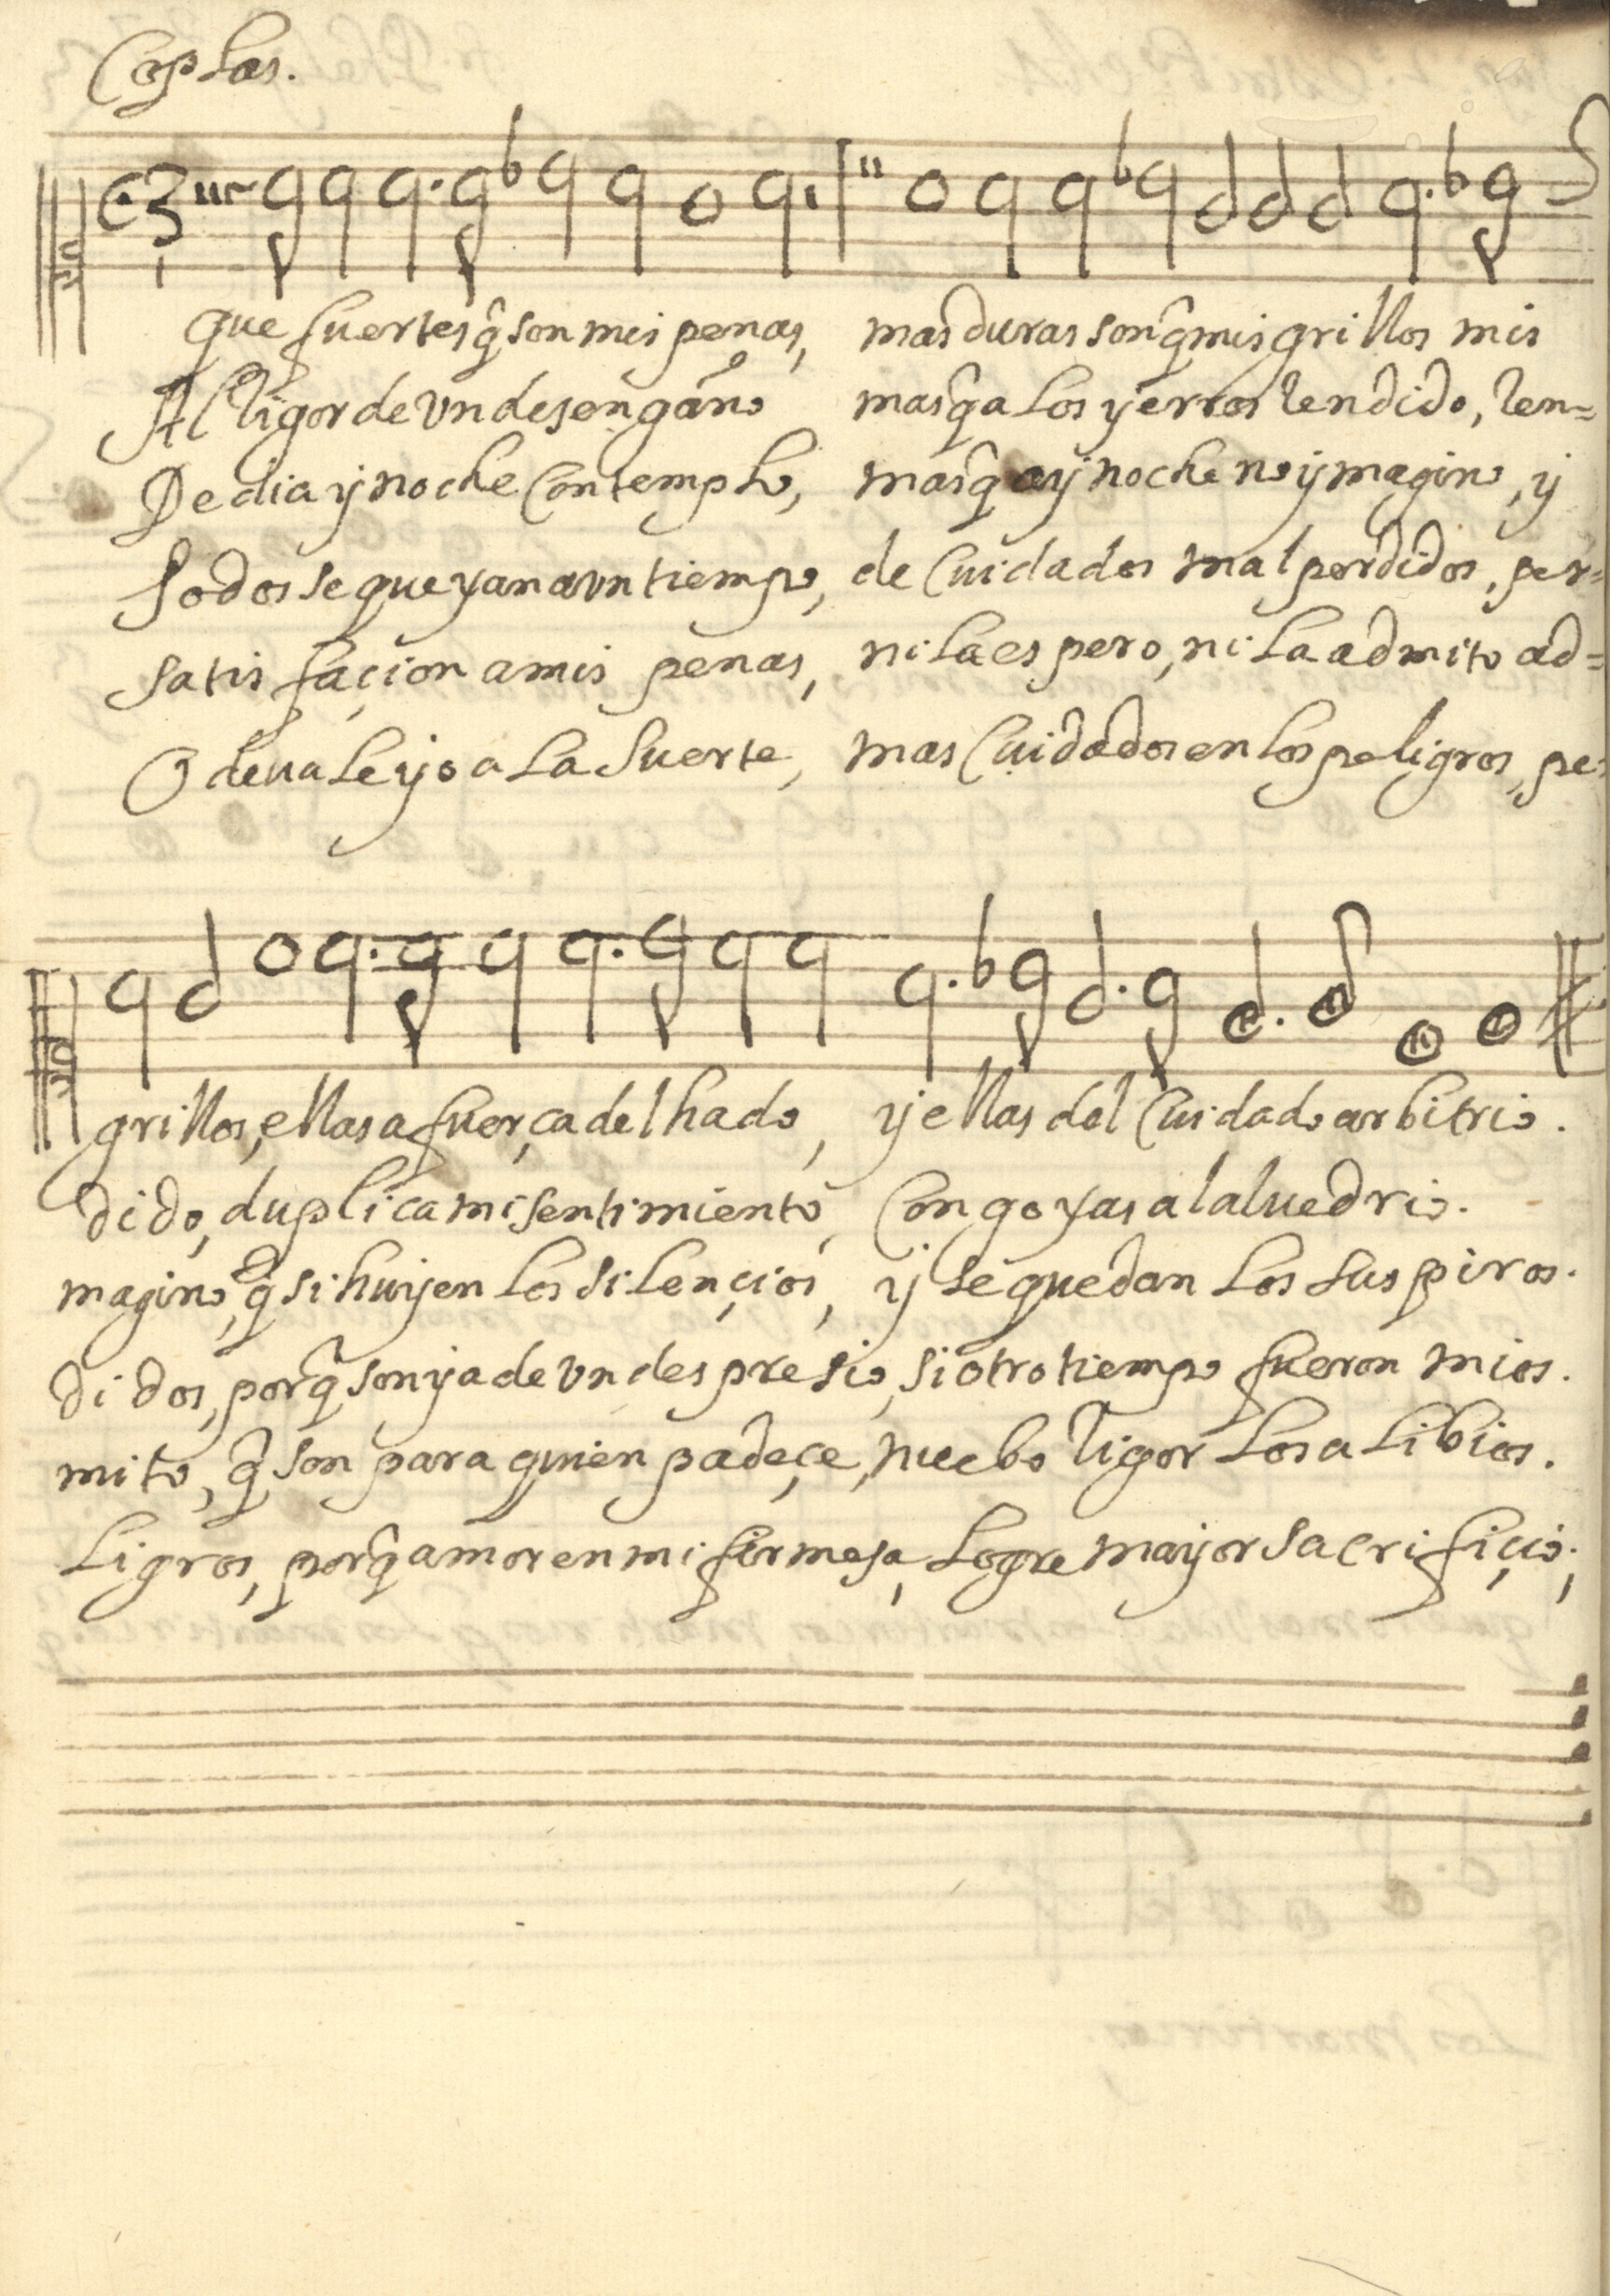 Coplas.
que fuertes q̃ son mis penas, mas duras son q̃ mis grillos mis
Al rigor de vn desengaño mas q̃ a los yerros rendido, ren=
De dia y noche contemplo, mas q̃ ay noche no ymagino, y
todos se queyan a vn tiempo, de cuidados mal perdidos, per=
satisfaçion a mis penas, ni la espero, ni la admito ad=
O deuale yo a la suerte, mas cuidados en los peligros, pe=
grillos, ellas a fuerça del hado, y ellas del cuidado arbitrio.
dido, duplica mi sentimiento, congoxas al aluedrio.
magino, q̃ si huyen los silençios, y se quedan los suspiros.
didos, porq̃ son ya de vn despresio, si otro tiempo fueron mios.
mito, q̃ son para quien padeçe, nuebo rigor los alibios.
ligros, porq̃ amor en mi firmesa, logre mayor sacrifiçio.